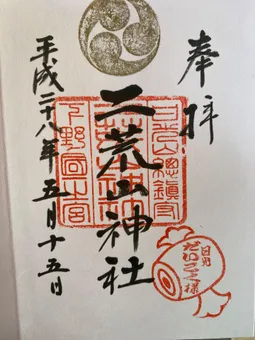 奉拝
日光山總鎮守
二荒山神社
下野國一宮
平成二十八年五月十五日
日光
だいこく様